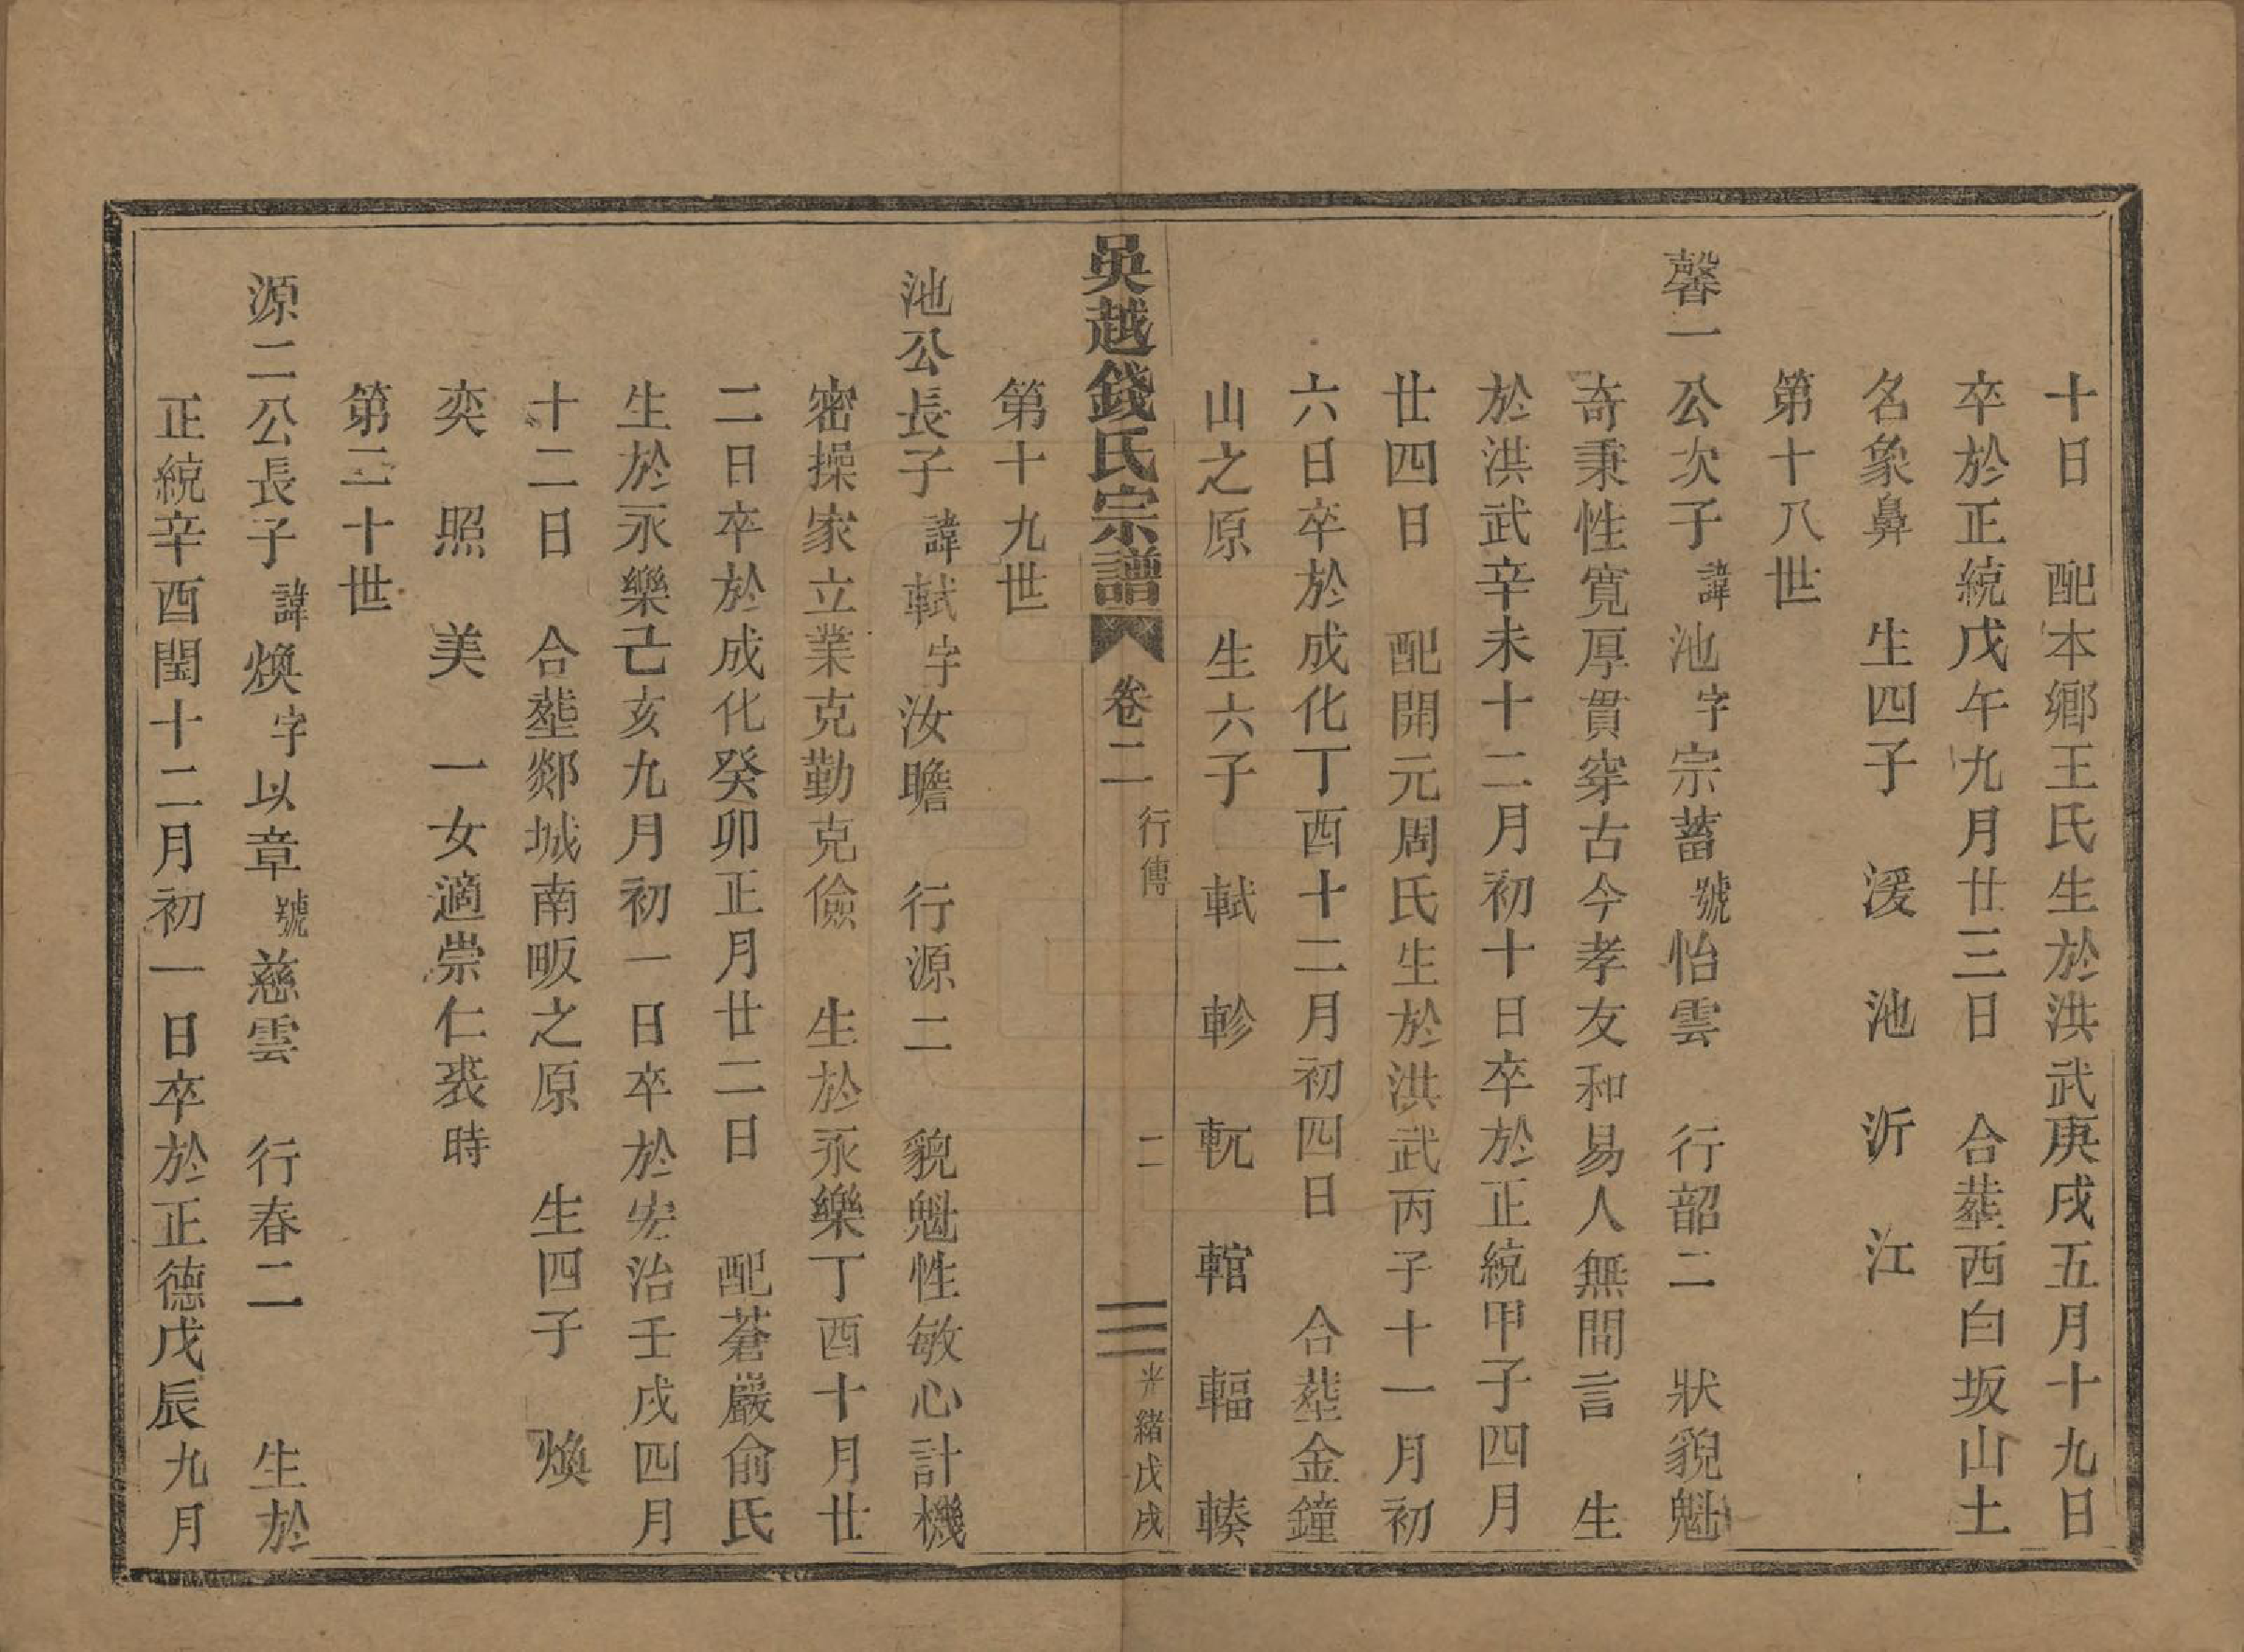 十日　配本鄉王氏生於洪武庚戌五月十九日
卒於正統戊午九月廿三日　合塟西白坂山土
名象鼻　生四子　湲　池　沂　江
第十八世
馨一公次子諱池字宗蓄號怡雲　行韶二　狀貌魁
奇秉性寬厚貫穿古今孝友和易人無間言　生
於洪武辛未十二月初十日卒於正統甲子四月
廿四日　配開元周氏生於洪武丙子十一月初
六日卒於成化丁酉十二月初四日　合塟金鐘
山之原　生六子　軾　軫　軏　輨　輻　輳
吳越錢氏宗譜　卷二　行傳　二　光緒戊戌
第十九世
池公長子諱軾字汝瞻　行源二　貌魁性敏心計機
密操家立業克勤克儉　生於永樂丁酉十月廿
二日卒於成化癸卯正月廿二日　配蒼嚴俞氏
生於永樂己亥九月初一日卒於宏治壬戌四月
十二日　合塟郯城南畈之原　生四子　煥
奕　照　美　一女適崇仁裘時
第二十世
源二公長子諱煥字以章號慈雲　行春二　生於
正統辛酉閏十二月初一日卒於正德戊辰九月